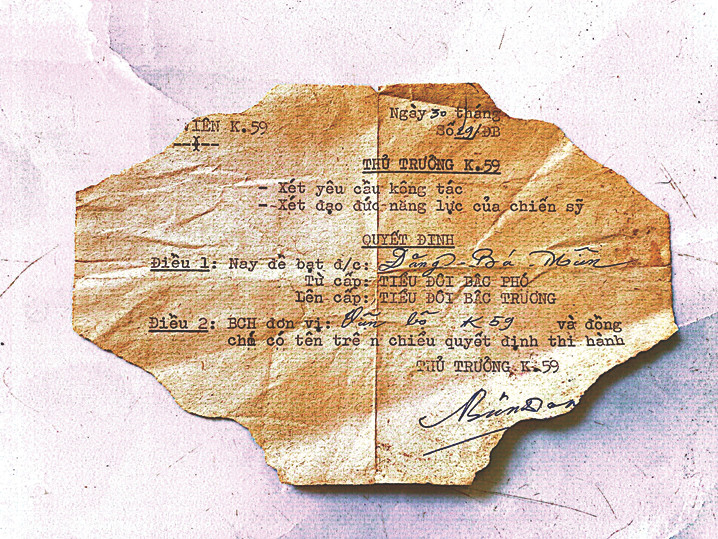 VIÊN K.59
--I--
Ngày 30 tháng
Số 29/ĐB
THỦ TRƯỞNG K.59
- Xét yêu cầu kông tác
- Xét đạo đức năng lực của chiến sỹ
QUYẾT ĐỊNH
Điều 1: Nay đề bạt đ/c: Đặng Bá Mẫn
Từ cấp: TIỂU ĐÔI BẬC PHÓ
Lên cấp: TIỂU ĐÔI BẬC TRƯỞNG
Điều 2: BCH đơn vị: K 59 và đồng
chí có tên trê n chiếu quyết định thi hành
THỦ TRƯỞNG K.59